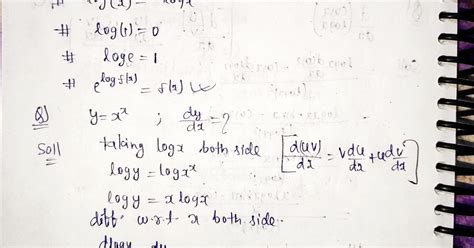 # log(x) = logx
# log(1) = 0
# loge = 1
# e^logf(x) = f(x)
Q) y = x^x ; dy/dx = ?
Soll taking logx both side [d(uv)/dx = v du/dx + u dv/dx]
logy = logx^x
logy = x logx
diff. w.r.t x both side..
dlogy dy